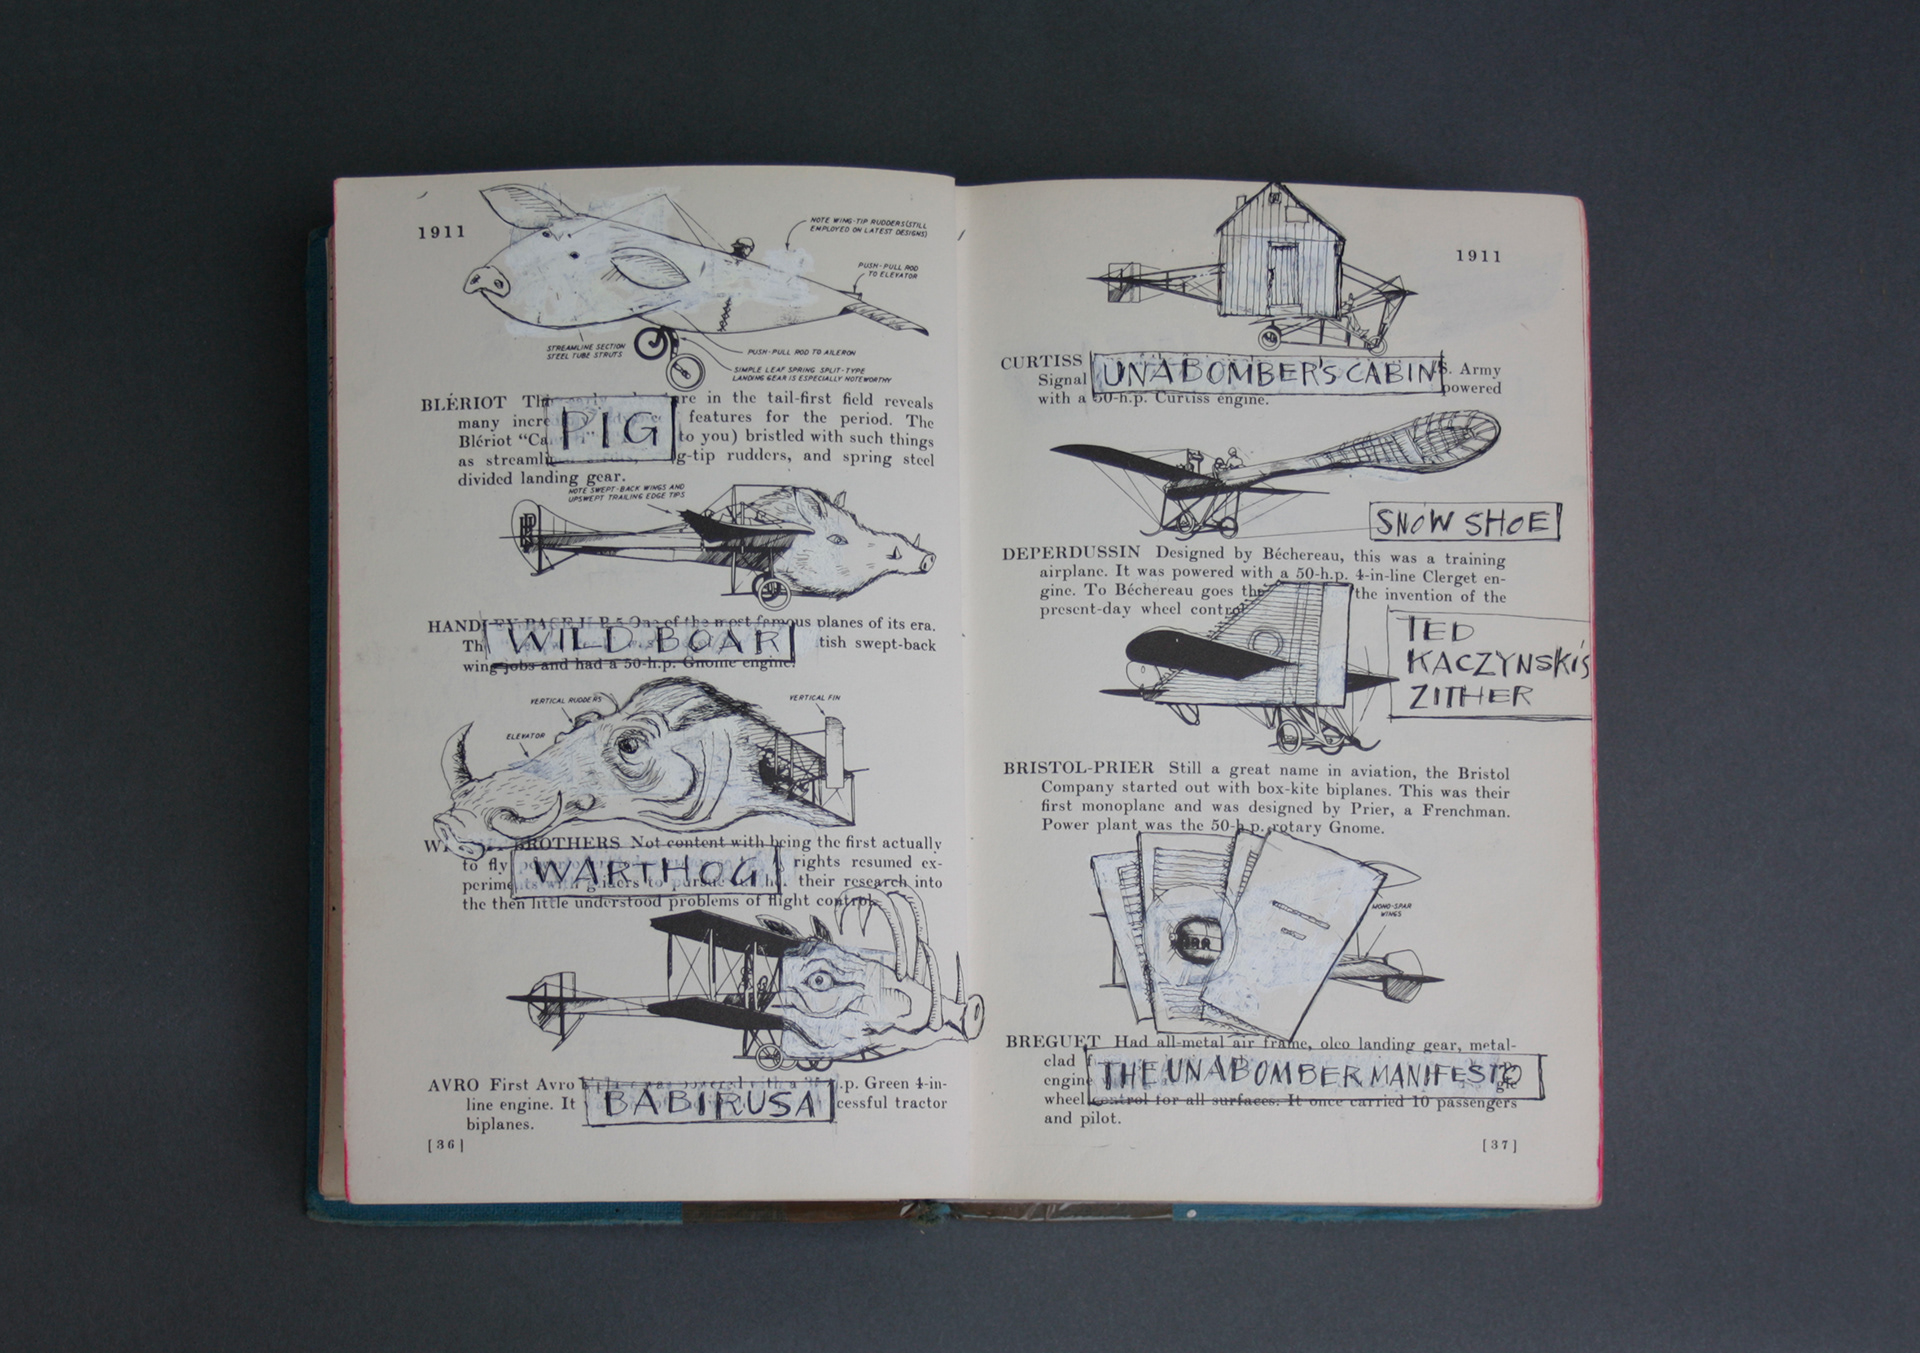 1911
NOTE WING-TIP RUDDERS (STILL
EMPLOYED ON LATEST DESIGNS)
PUSH-PULL ROD
TO ELEVATOR
STREAMLINE SECTION
STEEL TUBE STRUTS
PUSH-PULL ROD TO AILERON
SIMPLE LEAF SPRING SPLIT-TYPE
LANDING GEAR IS ESPECIALLY NOTEWORTHY
BLÉRIOT in the tail-first field reveals
many features for the period. The
Blériot to you) bristled with such things
as rudders, and spring steel
divided landing gear.
PIG
NOTE SWEPT-BACK WINGS AND
UPSWEPT TRAILING EDGE TIPS
HANDLEY PAGE H.P.5 One of the most famous planes of its era.
swept-back
wing jobs and had a 50-h.p. Gnome engine.
WILD BOAR
VERTICAL RUDDERS
VERTICAL FIN
ELEVATOR
BROTHERS Not content with being the first actually
to fly rights resumed ex-
gliders to pursue their research into
the then little understood problems of flight control.
WARTHOG
AVRO First Avro Green 4-in-
line engine. It tractor
biplanes.
BABIRUSA
[36]
1911
CURTISS Army
Signal powered
with a 50-h.p. Curtiss engine.
UNABOMBER'S CABIN
SNOW SHOE
DEPERDUSSIN Designed by Béchereau, this was a training
airplane. It was powered with a 50-h.p. 4-in-line Clerget en-
gine. To Béchereau goes the invention of the
present-day wheel control
TED
KACZYNSKI'S
ZITHER
BRISTOL-PRIER Still a great name in aviation, the Bristol
Company started out with box-kite biplanes. This was their
first monoplane and was designed by Prier, a Frenchman.
Power plant was the 50-h.p. rotary Gnome.
MONO-SPAR
WINGS
BREGUET Had all-metal air frame, oleo landing gear, metal-
clad
engine
wheel control for all surfaces. It once carried 10 passengers
and pilot.
THE UNABOMBER MANIFESTO
[37]